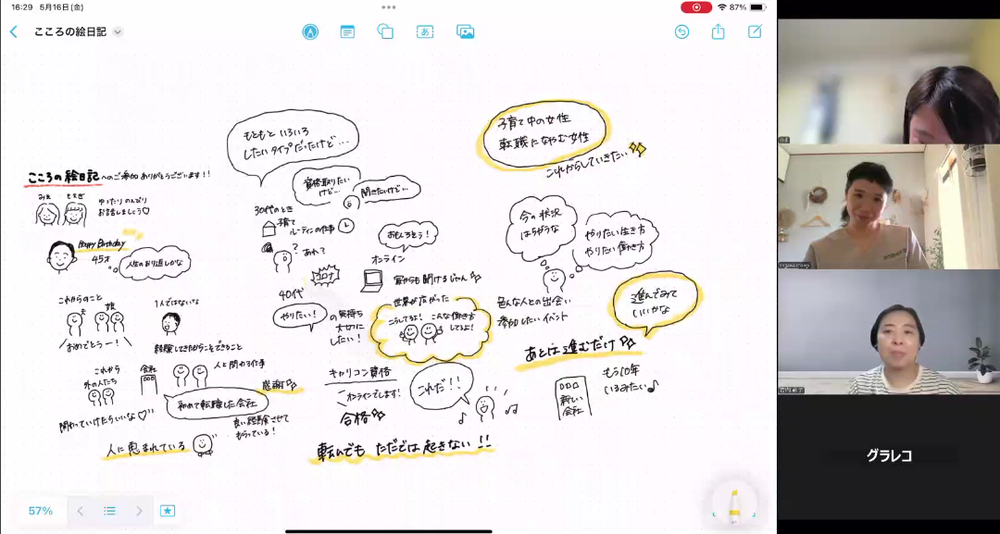 16:29 5月16日(金)
87%
こころの絵日記
こころの絵日記へのご参加ありがとうございます!!
ゆったりのんびり
お話しましょう♡
Happy Birthday
45才
人生の折り返しかな
これからのこと
娘
1人ではないな
おめでとうー!
経験してきたからこそできること
これから
外の人たち
会社
人と関わる仕事
感謝
初めて転職した会社
関わっていけたらいいな♡
良い経験させて
もらっている!
人に恵まれている
もともといろいろ
したいタイプだったけど…
資格取りたい
けど…
聞きたいけど…
30代のとき
子育て
ルーティンの仕事
おもしろそう!
オンライン
あれ?
コロナ
家からも聞けるじゃん
40代
やりたい!
の気持ち
大切に
したい!
世界が広がった
こうしてるよ!
こんな働き方
してるよ!
キャリコン資格
オンラインでします!
合格
これだ!!
転んでもただでは起きない!!
子育て中の女性
転職になやむ女性
これからしていきたい
今の状況
はちがうな
やりたい生き方
やりたい働き方
色んな人との出会い
参加したいイベント
進んでみて
いいかな
あとは進むだけ
新しい
会社
もう10年
いるみたい♪
57%
グラレコ